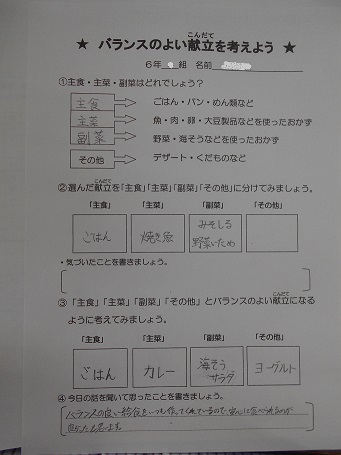 ★ バランスのよい献立を考えよう ★
こんだて
6年 組 名前
①主食・主菜・副菜はどれでしょう？
主食 ごはん・パン・めん類など
主菜 魚・肉・卵・大豆製品などを使ったおかず
副菜 野菜・海そうなどを使ったおかず
その他 デザート・くだものなど
こんだて
②選んだ献立を「主食」「主菜」「副菜」「その他」に分けてみましょう。
「主食」 「主菜」 「副菜」 「その他」
ごはん 焼き魚 みそしる
野菜いため
・気づいたことを書きましょう。
こんだて
③「主食」「主菜」「副菜」「その他」とバランスのよい献立になる
ように考えてみましょう。
「主食」 「主菜」 「副菜」 「その他」
ごはん カレー 海そう ヨーグルト
サラダ
④ 今日の話を聞いて思ったことを書きましょう。
バランスの良い給食をいつも作ってくれているので